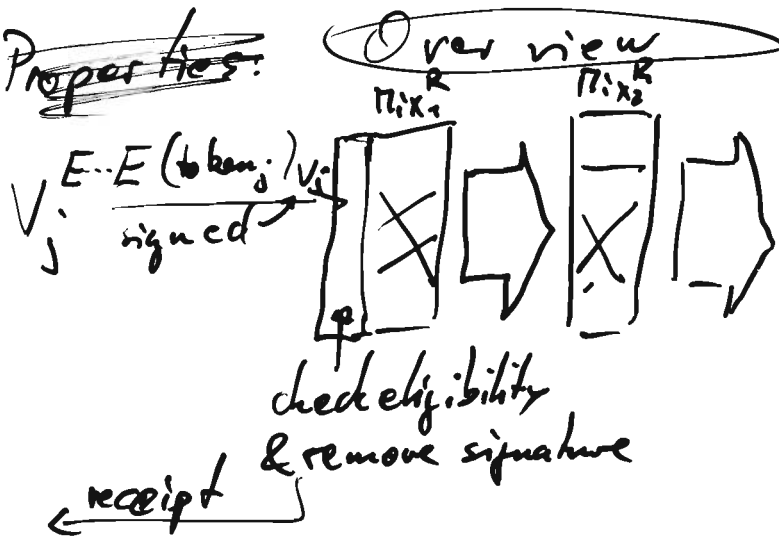 Properties: Overview
Mix₁ᴿ Mix₂ᴿ
Vⱼ E...E (tokenⱼ) Vⱼ
signed
check eligibility
& remove signature
receipt